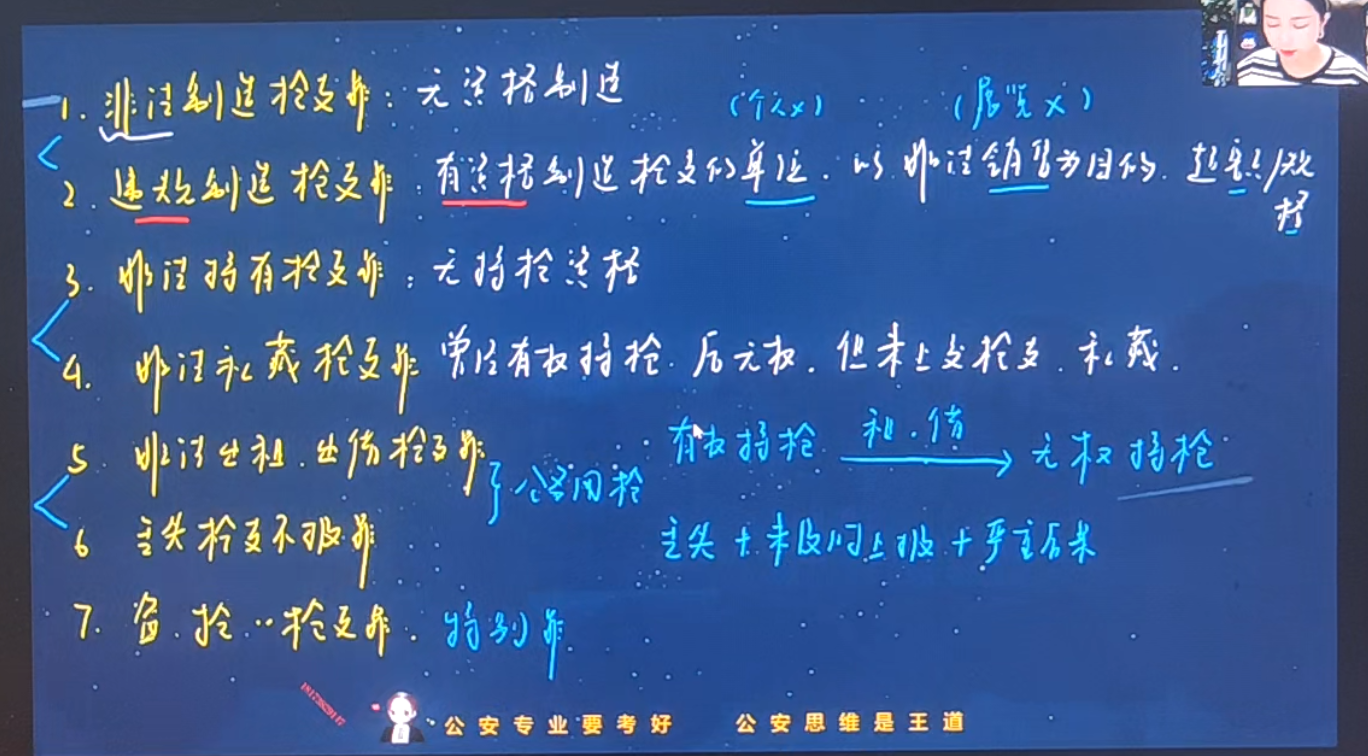 1. 非法制造枪支罪：无资格制造
（个人×） （展览×）
2. 违规制造枪支罪：有资格制造枪支的单位．以非法销售为目的．超量/规格
3. 非法持有枪支罪：无持枪资格
4. 非法私藏枪支罪 曾经有权持枪．后无权．但未上交枪支．私藏．
5 非法出租．出借枪支罪 } 公务用枪 有权持枪 租．借 → 无权持枪
6 丢失枪支不报罪 丢失＋未及时上报＋严重后果
7. 盗．抢‥枪支罪．特别罪
公安专业要考好 公安思维是王道